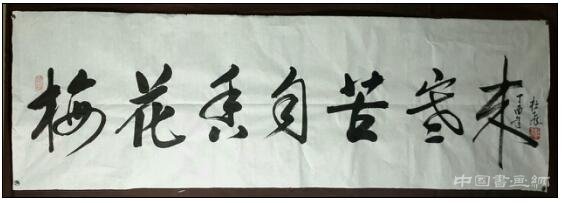 梅花香自苦寒来
丁酉年
中国书画网